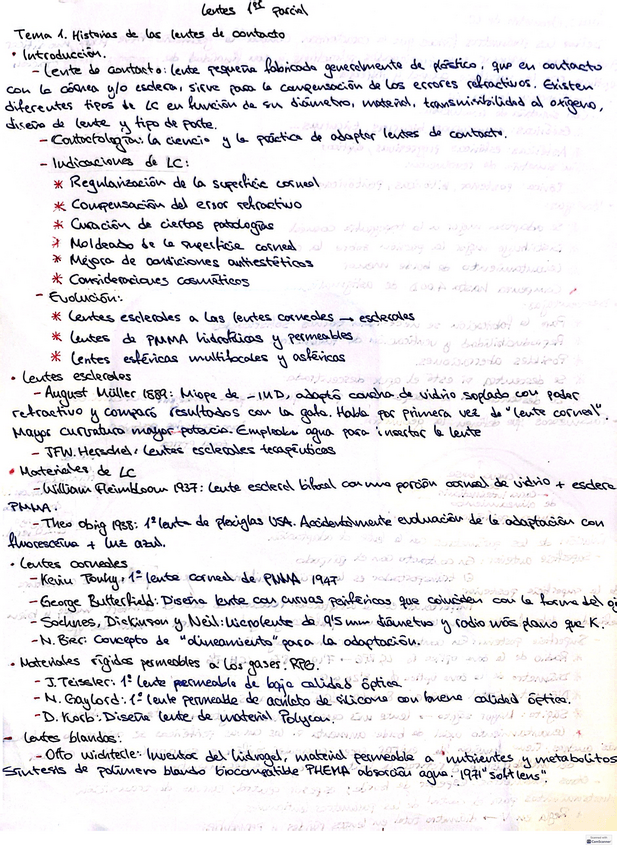 Lentes 1er Parcial
Tema 1. Historias de las lentes de contacto
• Introducción.
- Lente de contacto: lente pequeña fabricada generalmente de plástico, que en contacto
con la córnea y/o esclera, sirve para la compensación de los errores refractivos. Existen
diferentes tipos de LC en función de su diámetro, material, transmisibilidad al oxígeno,
diseño de lente y tipo de porte.
- Contactología: la ciencia y la práctica de adaptar lentes de contacto.
- Indicaciones de LC:
* Regularización de la superficie corneal
* Compensación del error refractivo
* Curación de ciertas patologías
* Moldeado de la superficie corneal
* Mejora de condiciones antiestéticos
* Consideraciones cosméticos
- Evolución:
* Lentes esclerales a las lentes corneales → esclerales
* Lentes de PMMA hidrofílicas y permeables
* Lentes esféricas multifocales y asféricas
• Lentes esclerales
- August Müller 1889: Miope de -14D, adaptó concha de vidrio soplado con poder
refractivo y comparó resultados con la gafa. Habla por primera vez de "lente corneal".
Mayor curvatura mayor potencia. Empleaba agua para insertar la lente
- JFW. Herschel: Lentes esclerales terapéuticas
• Materiales de LC
- William Fleimbloom 1937: Lente escleral bifocal con una porción corneal de vidrio + esclera
PMMA.
- Theo Obrig 1938: 1ª lente de plexiglas USA. Accidentalmente evaluación de la adaptación con
fluoresceína + luz azul.
• Lentes corneales
- Kevin Touhy: 1ª lente corneal de PMMA 1947
- George Butterfield: Diseña lente con curvas periféricas que coinciden con la forma del
- Sochnes, Dickinson y Neil: Microlente de 9'5 mm diámetro y radio más plano que K.
- N. Bier: Concepto de "alineamiento" para la adaptación.
• Materiales rígidos permeables a los gases: RPG.
- J. Teissler: 1ª lente permeable de baja calidad óptica
- N. Gaylord: 1ª lente permeable de acrilato de silicona con buena calidad óptica.
- D. Korb: Diseña lente de material Polycon.
- Lentes blandas:
- Otto Wichterle: Inventor del hidrogel, material permeable a nutrientes y metabolitos
Síntesis de polímero blando biocompatible PHEMA absorción agua. 1971 "soft lens".
CamScanner